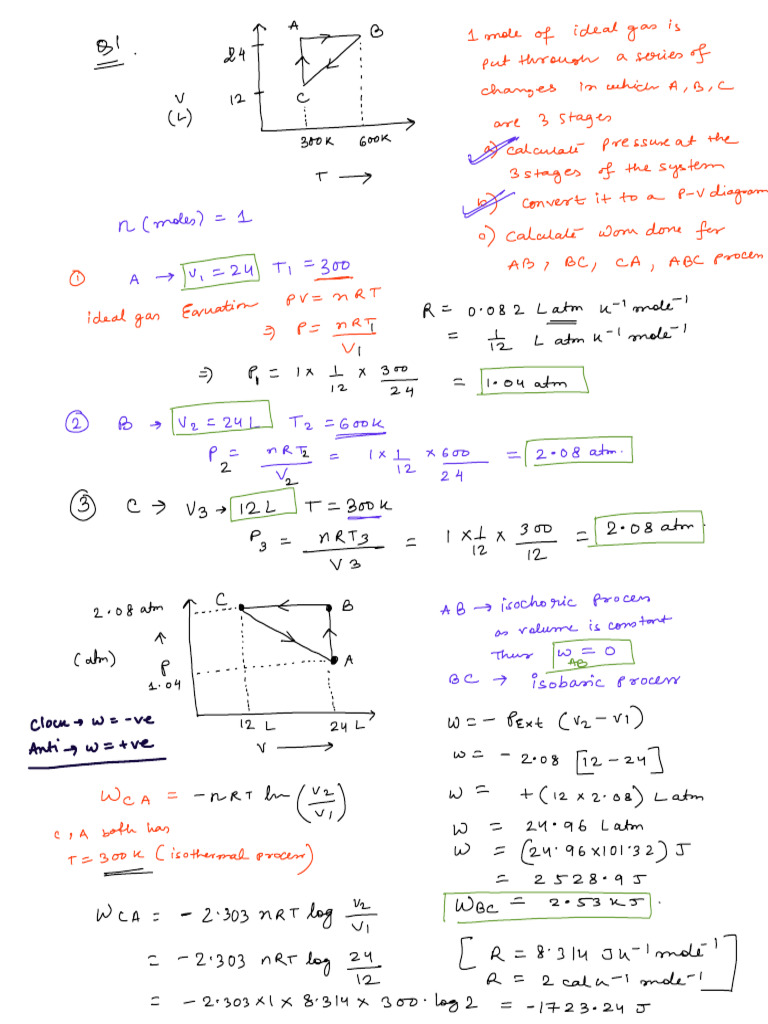 Q1
A
B
24
V
(L)
12
C
300K
600K
T →
1 mole of ideal gas is
put through a series of
changes in which A, B, C
are 3 stages
a) calculate pressure at the
3 stages of the system
b) convert it to a P-V diagram
c) calculate work done for
AB, BC, CA, ABC process
n (moles) = 1
① A → V₁ = 24 T₁ = 300
ideal gas Equation PV = nRT
⇒ P = nRT₁/V₁
R = 0.082 L atm K⁻¹ mole⁻¹
= 1/12 L atm K⁻¹ mole⁻¹
⇒ P₁ = 1 × 1/12 × 300/24 = 1.04 atm
② B → V₂ = 24 L T₂ = 600K
P₂ = nRT₂/V₂ = 1 × 1/12 × 600/24 = 2.08 atm.
③ C → V₃ → 12 L T = 300 K
P₃ = nRT₃/V₃ = 1 × 1/12 × 300/12 = 2.08 atm.
C
2.08 atm
B
↑
(atm)
P
A
1.04
12 L
24 L
V →
Clock → w = -ve
Anti → w = +ve
AB → isochoric process
as volume is constant
Thus W_AB = 0
BC → isobaric process
W = - P_Ext (V₂ - V₁)
W = - 2.08 [12 - 24]
W = + (12 × 2.08) L atm
W = 24.96 L atm
W = (24.96 × 101.32) J
= 2528.9 J
W_BC = 2.53 KJ.
W_CA = -nRT ln (V₂/V₁)
C, A both has
T = 300 K (isothermal process)
W_CA = - 2.303 nRT log V₂/V₁
= - 2.303 nRT log 24/12
= - 2.303 × 1 × 8.314 × 300 . log 2 = -1723.24 J
[R = 8.314 J K⁻¹ mole⁻¹
R = 2 cal K⁻¹ mole⁻¹]